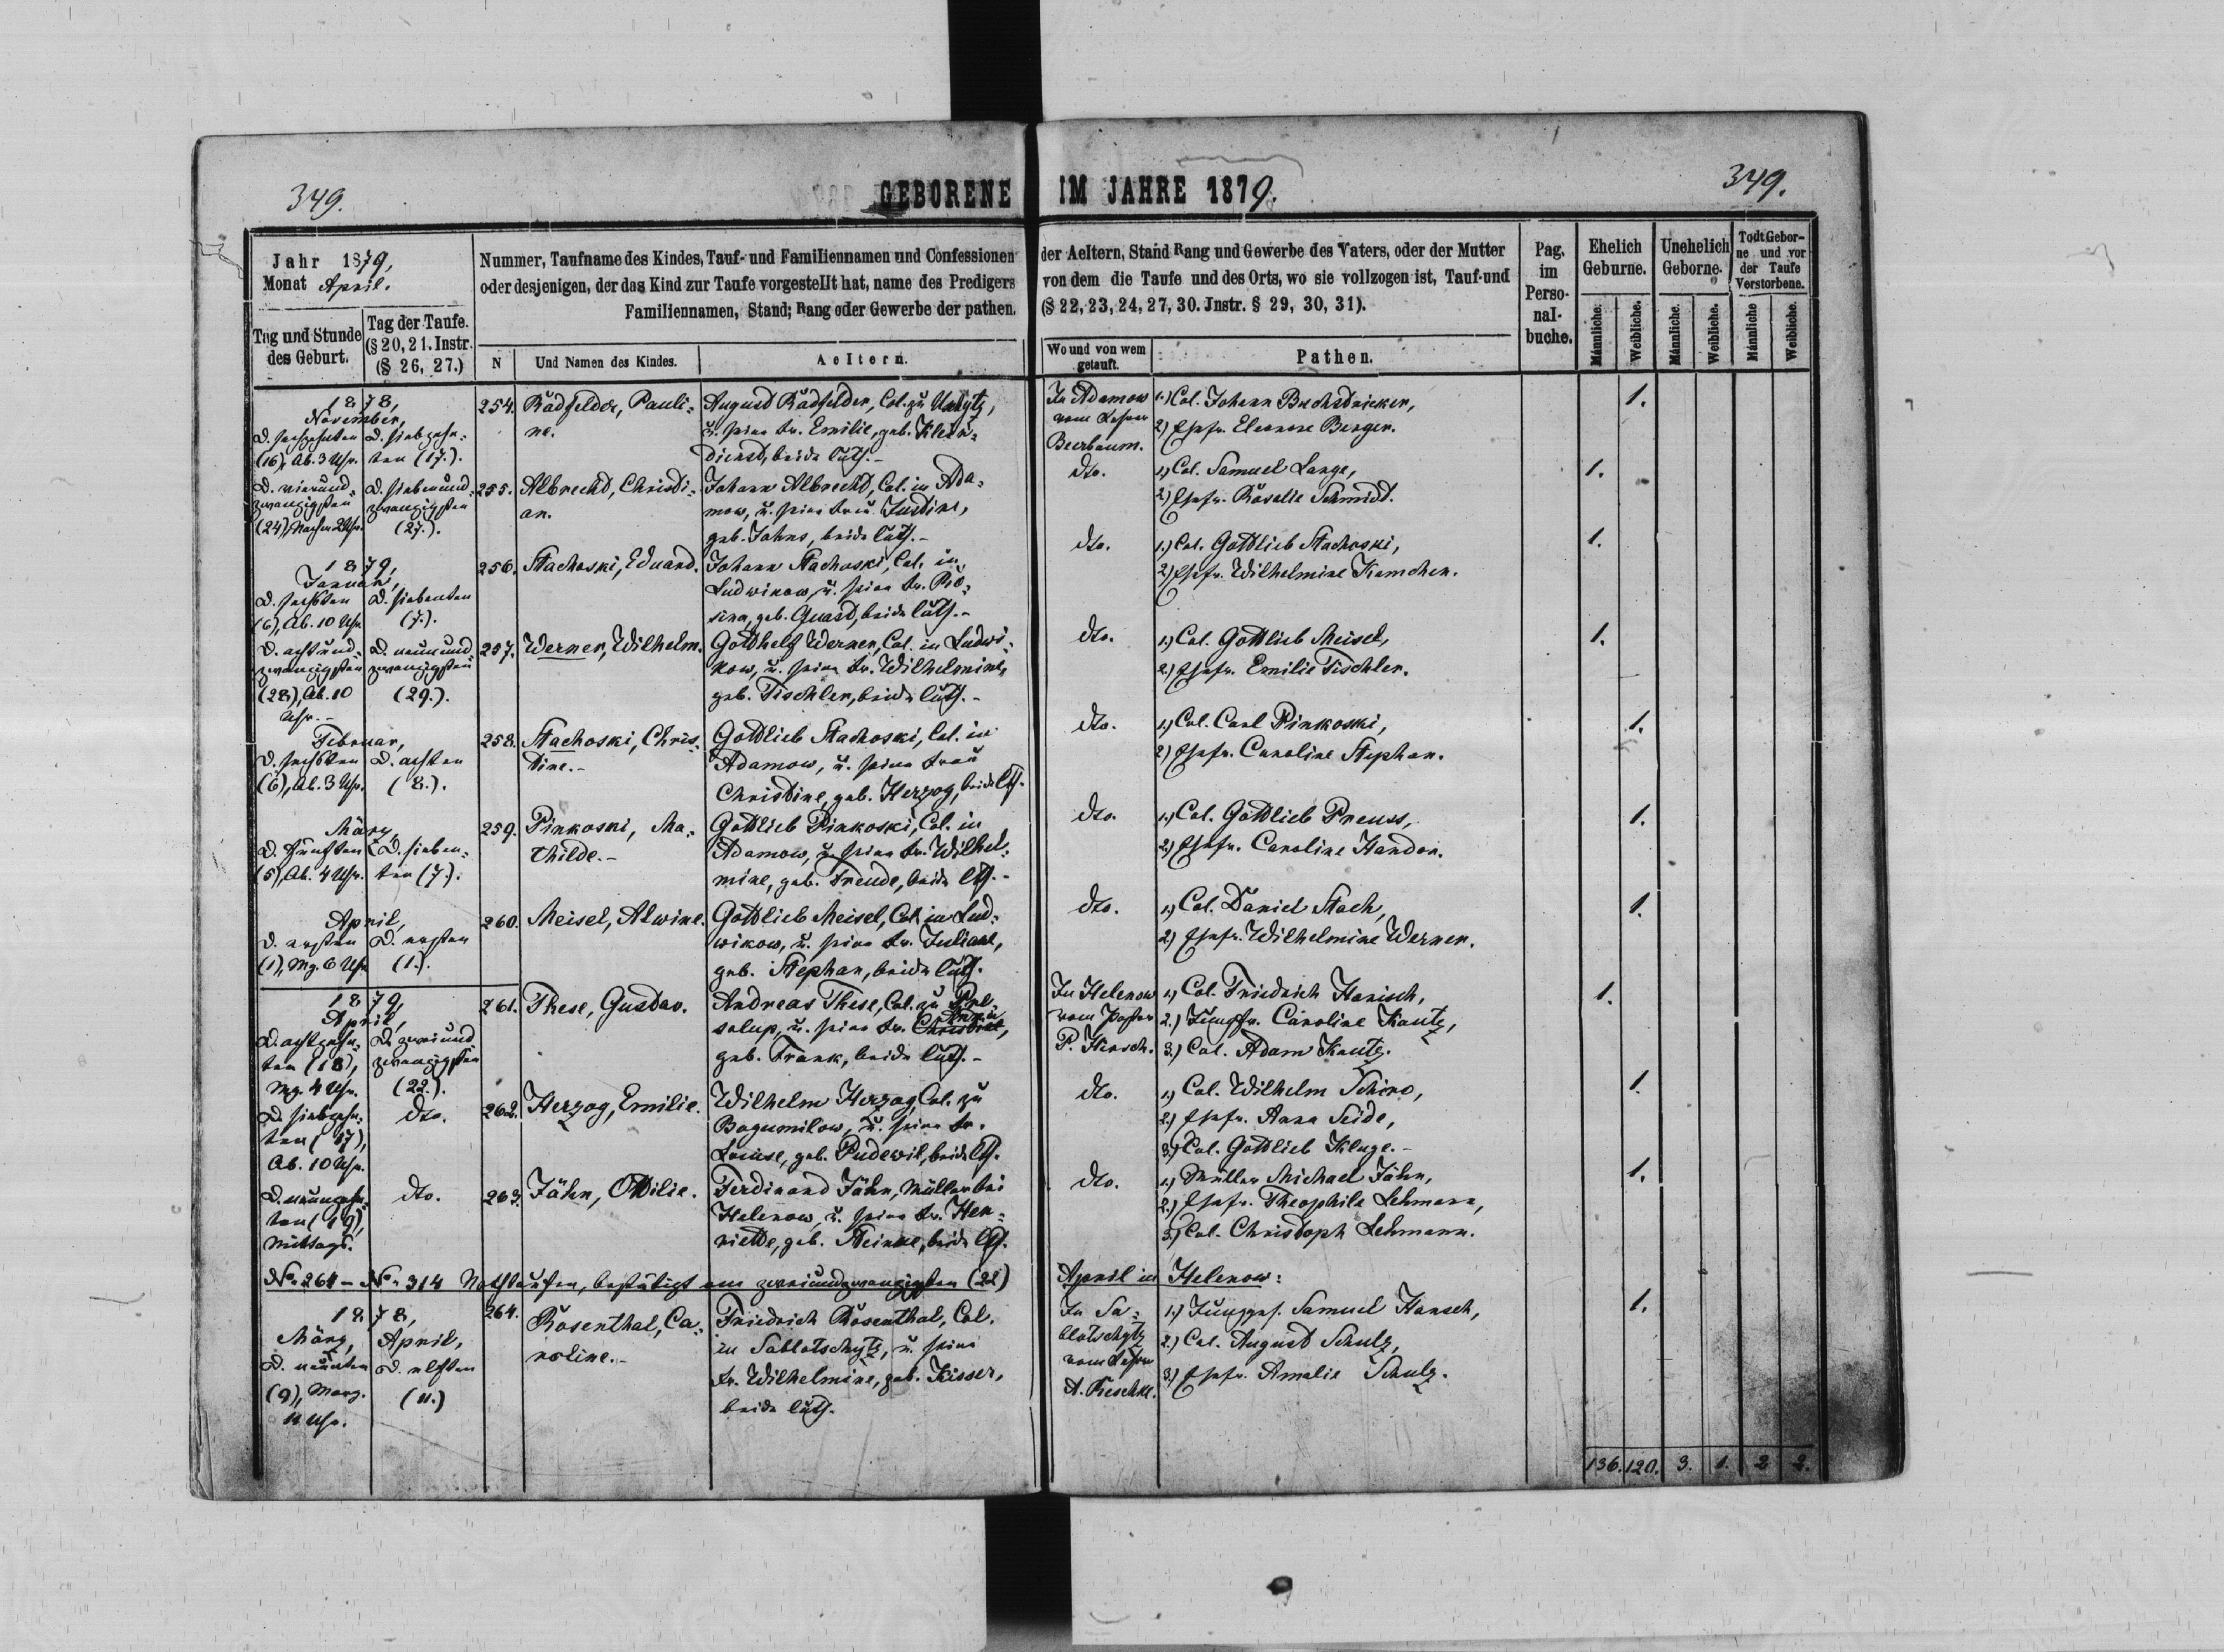 349.
GEBORENE IM JAHRE 1879.
349.
Jahr 1879,
Monat April.
Tag und Stunde
des Geburt.
Tag der Taufe.
(§ 20, 21. Instr.
(§ 26, 27.)
Nummer, Taufname des Kindes, Tauf- und Familiennamen und Confessionen
oder desjenigen, der das Kind zur Taufe vorgestellt hat, name des Predigers
Familiennamen, Stand; Rang oder Gewerbe der pathen.
N
Und Namen des Kindes.
Aeltern.
der Aeltern, Stand Rang und Gewerbe des Vaters, oder der Mutter
von dem die Taufe und des Orts, wo sie vollzogen ist, Tauf-und
(§ 22, 23, 24, 27, 30. Jnstr. § 29, 30, 31).
Wo und von wem
getauft.
Pathen.
Pag.
im
Perso-
nal-
buche.
Ehelich
Geburne.
Unehelich
Geborne.
Todt Gebor-
ne und vor
der Taufe
Verstorbene.
Männliche.
Weibliche.
Männliche.
Weibliche.
Männliche
Weibliche.
1878,
November,
D. sechzehnten
(16), Ab. 3 Uhr.
D. siebzehn-
ten (17.).
254.
Rädfelder, Pauli-
ne.
August Rädfelder, Col. zu
u. seine Fr. Emilie, geb. Klein-
dienst, beide luth.-
In Adamow
vom Lehrer
Beerbaum.
1.) Col. Johann Buchstricker,
2) Ehefr. Eleonore Berger.
1.
D. vierund-
zwanzigsten
(24), Nachm. 2 Uhr.
D. siebenund-
zwanzigsten
(27.).
255.
Albrecht, Christi-
an.
Johann Albrecht, Col. in Ada-
mow, u. seine Frau Justine,
geb. Johns, beide luth.-
dto.
1.) Col. Samuel Lange,
2) Ehefr. Rosalie Schmidt.
1.
1879,
Januar,
D. sechsten
(6), Ab. 10 Uhr.
D. siebenten
(7.).
256.
Stachoski, Eduard.
Johann Stachoski, Col. in
Ludwikow, u. seine Fr. Ro-
sina, geb. Quast, beide luth.-
dto.
1.) Col. Gottlieb Stachoski,
2) Ehefr. Wilhelmine Kamchen.
1.
D. achtund-
zwanzigsten
(28), Ab. 10
Uhr.-
D. neunund-
zwanzigsten
(29.).
257.
Werner, Wilhelm.
Gotthelf Werner, Col. in Ludwi-
kow, u. seine Fr. Wilhelmine,
geb. Tischler, beide luth.-
dto.
1.) Col. Gottlieb Meisel,
2) Ehefr. Emilie Tischler.
1.
Februar,
D. sechsten
(6), Ab. 3 Uhr.
D. achten
(8.).
258.
Stachoski, Chris-
tine.-
Gottlieb Stachoski, Col. in
Adamow, u. seine Frau
Christine, geb. Herzog, beide lth.
dto.
1.) Col. Carl Pinkoski,
2) Ehefr. Caroline Stephan.
1.
März,
D. fünften
(5), Ab. 4 Uhr.
D. sieben-
ten (7.).
259.
Pinkoski, Ma-
thilde.-
Gottlieb Pinkoski, Col. in
Adamow, u. seine Fr. Wilhel-
mine, geb. Freude, beide lth.-
dto.
1.) Col. Gottlieb Preuss,
2) Ehefr. Caroline Handor.
1.
April,
D. ersten
(1), Mg. 6 Uhr
D. ersten
(1.).
260.
Meisel, Alwine.
Gottlieb Meisel, Col. in Lud-
wikow, u. seine Fr. Juliane,
geb. Stephan, beide luth.
dto.
1.) Col. Daniel Stach,
2) Ehefr. Wilhelmine Werner.
1.
1879,
April,
D. achtzehn-
ten (18),
Mg. 4 Uhr.
D. zweiund
zwanzigsten
(22.).
261.
These, Gustav.
Andreas These, Col. zu Pre-
salup, u. seine Fr. Christine,
Anna
geb. Frank, beide luth.-
In Helenow
vom Pastor
P. Hersch.
1.) Col. Friedrich Harisch,
2.) Jungfr. Caroline Kautz,
3.) Col. Adam Kautz.
1.
D. siebzehn-
ten (17),
Ab. 10 Uhr.
dto.
262.
Herzog, Emilie.
Wilhelm Herzog, Col. zu
Bogumilow, u. seine Fr.
Louise, geb. Pudewil, beide lth.
dto.
1.) Col. Wilhelm Schiro,
2.) Ehefr. Anna Seide,
3.) Col. Gottlieb Kluge.-
1.
D. neunzehn-
ten (19),
Mittags.
dto.
263.
Jähn, Ottilie.
Ferdinand Jähn, Müller bei
Helenow, u. seine Fr. Hen-
riette, geb. Steinke, beide lth.
dto.
1.) Müller Michael Jähn,
2.) Ehefr. Theophile Lehmann,
3.) Col. Christoph Lehmann.
1.
No. 264 - No. 314 Nothtaufen, bestätigt am zweiundzwanzigsten (22) April in Helenow:
1878,
März,
D. neunten
(9), Morg.
11 Uhr.
April,
D. elften
(11.)
264.
Rosenthal, Ca-
roline.-
Friedrich Rosenthal, Col.
in Sablotschytz, u. seine
Fr. Wilhelmine, geb. Kisser,
beide luth.
In Sa-
blotschytz
vom Lehrer
A. Reschke.
1.) Junges. Samuel Harsch,
2.) Col. August Schulz,
3.) Ehefr. Amalie Schulz.
1.
136. 120. 3. 1. 2 2.